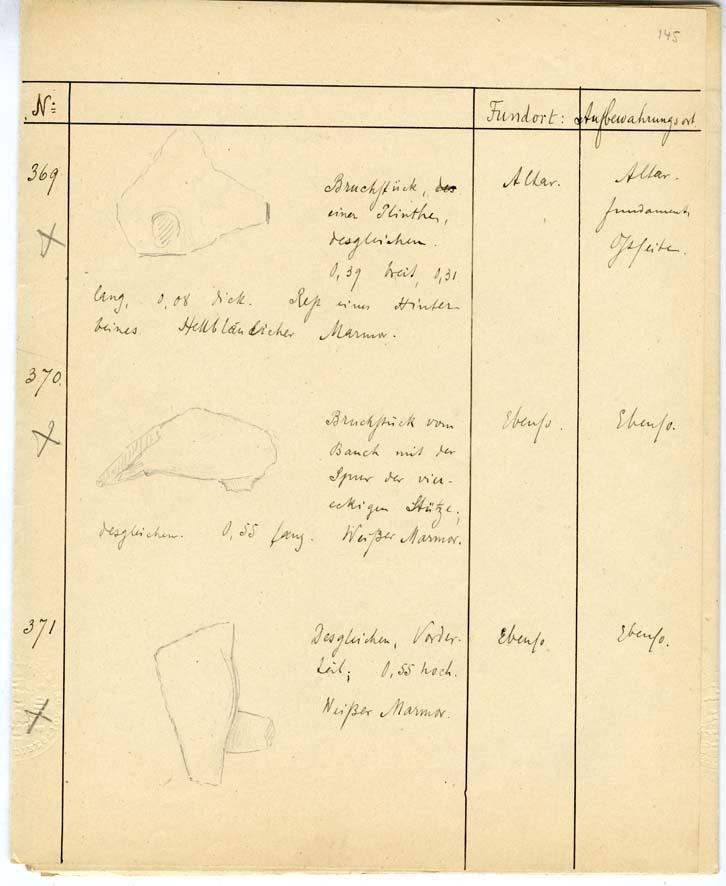 145
No: Fundort: Aufbewahrungsort
369 Bruchstück, des Altar. Altar-
einer Plinthe, fundament
desgleichen. Ostseite.
0,39 breit, 0,31
lang, 0,08 dick. Rest eines Hinter-
beines Hellbläulicher Marmor.
370. Bruchstück vom Ebenso. Ebenso.
Bauch mit der
Spur der vier-
eckigen Stütze;
desgleichen. 0,55 lang. Weißer Marmor.
371 Desgleichen, Vorder- Ebenso. Ebenso.
teil; 0,55 hoch.
Weißer Marmor.